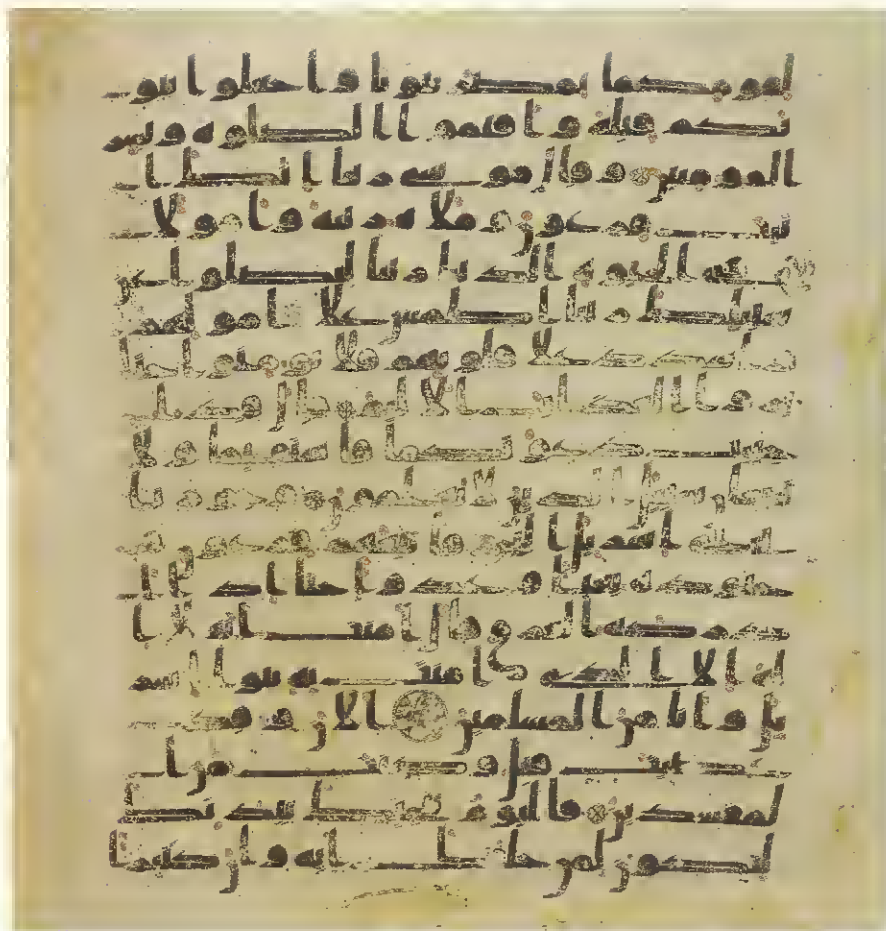 لقومكما بمصر بيوتا واجعلوا بيو
تكم قبلة واقيموا الصلوة وبشر
المومنين وقال موسى ربنا انك ا
تيت فرعون وملاه زينة وامولا
في الحيوة الدنيا ربنا ليضلوا عن
سبيلك ربنا اطمس على امولهم
واشدد على قلوبهم فلا يومنوا حتا
يروا العذاب الاليم قال قد ا
جيبت دعوتكما فاستقيما ولا
تتبعان سبيل الذين لا يعلمون وجوزنا
ببني اسريل البحر فاتبعهم فرعون و
جنوده بغيا وعدوا حتى اذا اد
ركه الغرق قال امنت انه لا ا
له الا الذي امنت به بنوا اسر
يل وانا من المسلمين الن وقد
عصيت قبل وكنت من ا
لمفسدين فاليوم ننجيك ببدنك
لتكون لمن خلفك اية وان كثيرا